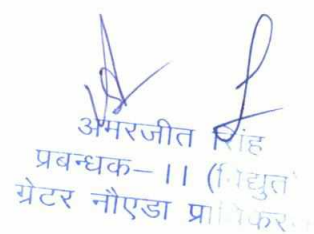 अमरजीत सिंह
प्रबन्धक– II (विद्युत)
ग्रेटर नौएडा प्राधिकरण